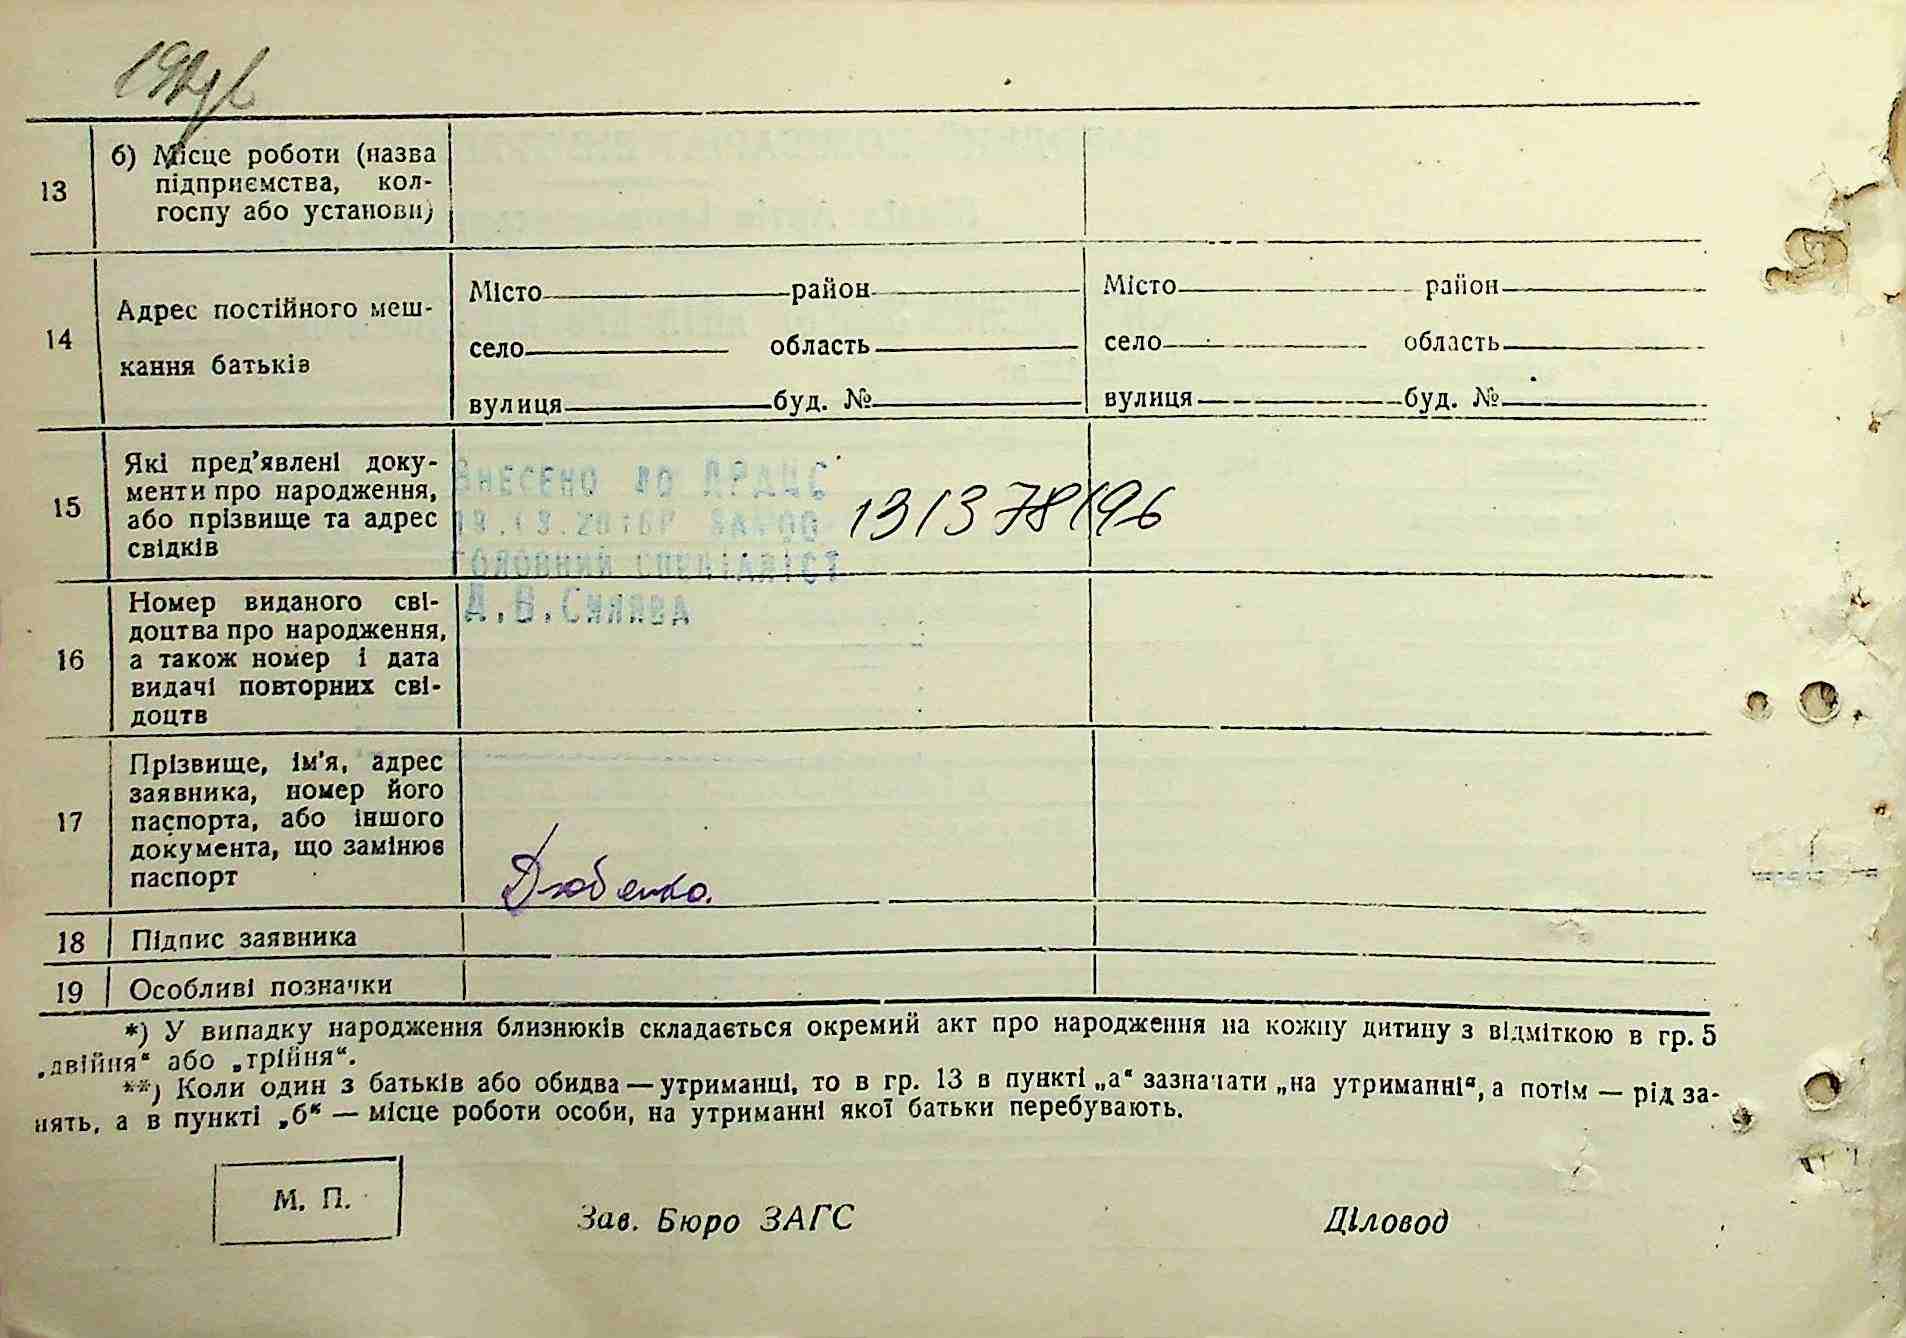 13
б) Місце роботи (назва
підприємства, кол-
госпу або установи)
14
Адрес постійного меш-
кання батьків
Місто район
село область
вулиця буд. №
Місто район
село область
вулиця буд. №
15
Які пред’явлені доку-
менти про народження,
або прізвище та адрес
свідків
ВНЕСЕНО ДО ДРАЦС
ГОЛОВНИЙ СПЕЦІАЛІСТ
131378196
16
Номер виданого сві-
доцтва про народження,
а також номер і дата
видачі повторних сві-
доцтв
17
Прізвище, ім'я, адрес
заявника, номер його
паспорта, або іншого
документа, що замінює
паспорт
Дзюбенко.
18
Підпис заявника
19
Особливі позначки
*) У випадку народження близнюків складається окремий акт про народження на кожну дитину з відміткою в гр. 5
„двійня“ або „трійня“.
**) Коли один з батьків або обидва — утриманці, то в гр. 13 в пункті „а“ зазначати „на утриманні“, а потім — рід за-
нять, а в пункті „б“ — місце роботи особи, на утриманні якої батьки перебувають.
М. П.
Зав. Бюро ЗАГС
Діловод